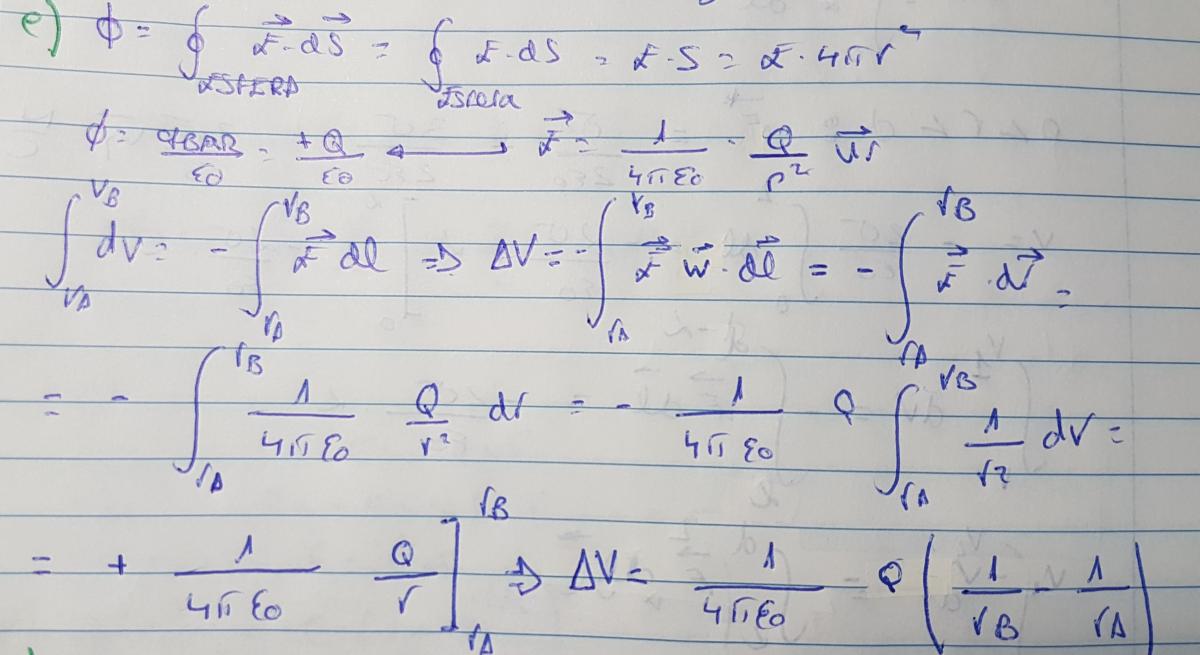 e) ϕ = ∮_ESFERA E⃗·dS⃗ = ∮_Esfera E·dS = E·S = E·4πr²
ϕ = qBAR/ε0 = +Q/ε0 ⟷ E⃗ = 1/(4πε0) · Q/r² u⃗r
∫_{VA}^{VB} dV = - ∫_{rA}^{rB} E⃗ dl ⇒ ΔV = - ∫_{rA}^{rB} E⃗ u⃗r · dl⃗ = - ∫_{rA}^{rB} E⃗ · dr⃗ =
= - ∫_{rA}^{rB} 1/(4πε0) Q/r² dr = - 1/(4πε0) Q ∫_{rA}^{rB} 1/r² dr =
= + 1/(4πε0) Q/r ]_{rA}^{rB} ⇒ ΔV = 1/(4πε0) Q (1/rB - 1/rA)